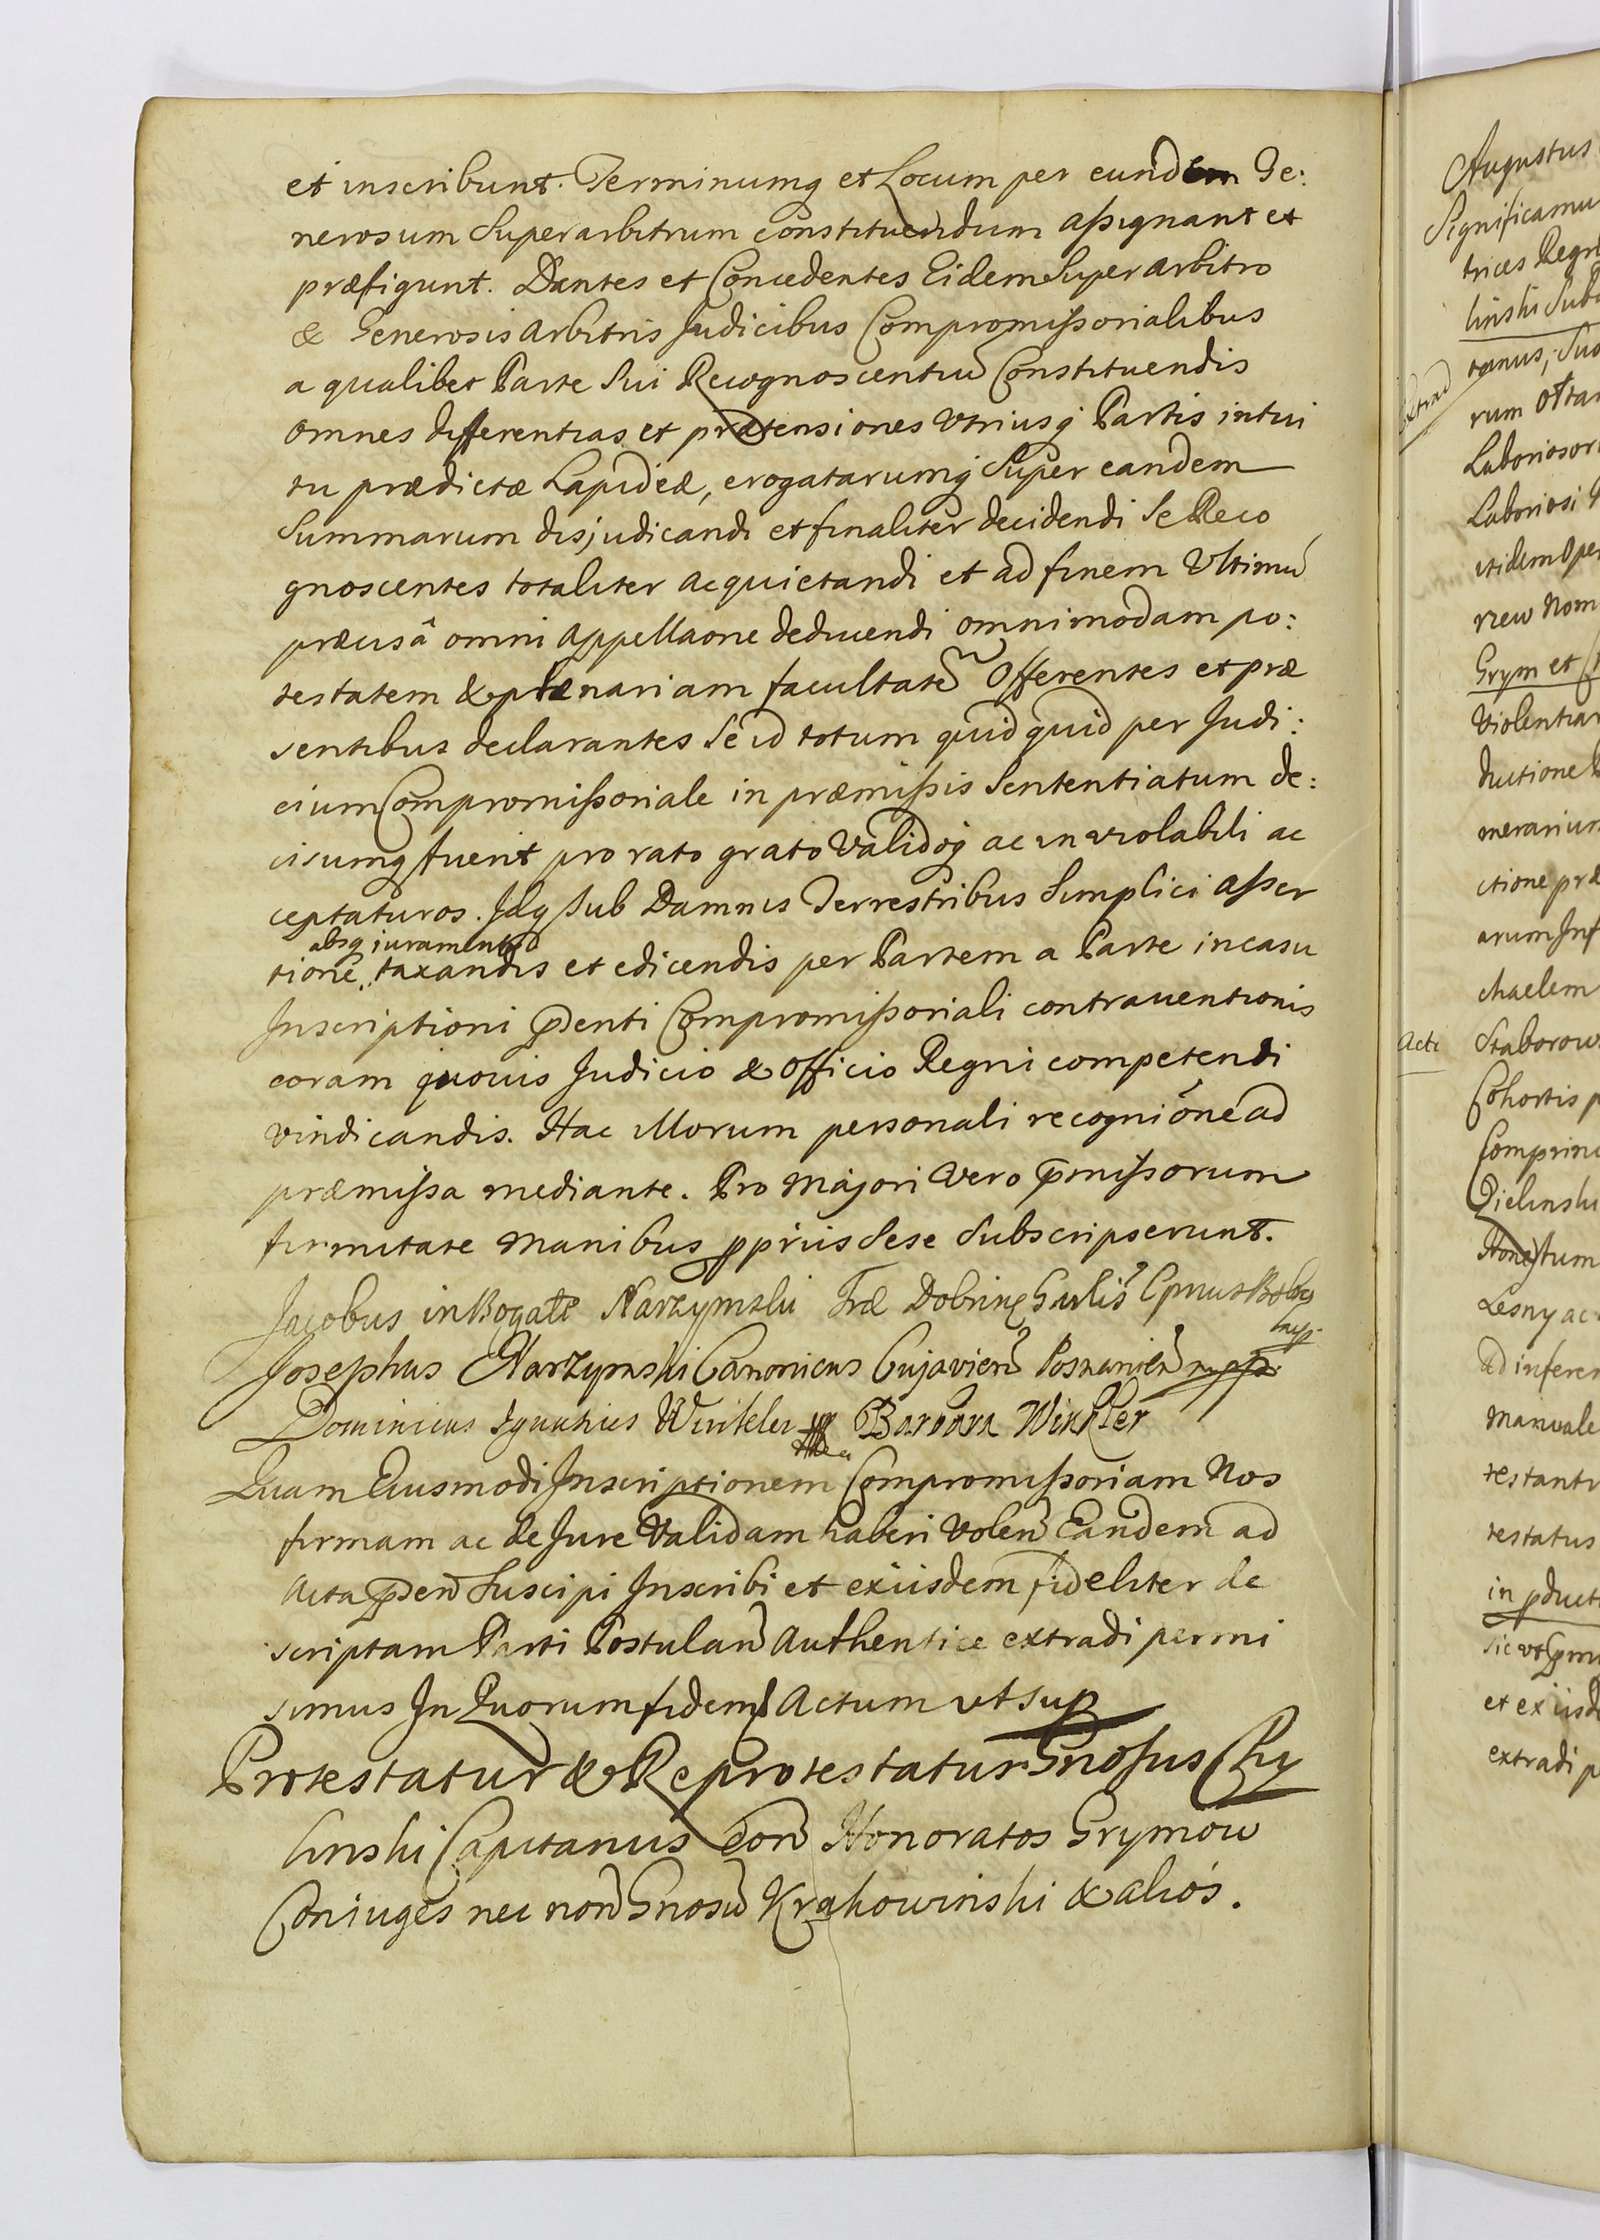 et inscribunt. Terminumq et Locum per eundem Ge:
nerosum Superarbitrum constituendum assignant et
præfigunt. Dantes et Concedentes Eidem Superarbitro
& Generosis Arbitris Judicibus Compromissorialibus
a qualibet Parte Sui Recognoscentiū Constituendis
omnes differentias et prætensiones Vtriusq Partis intui
tu prædictæ Lapideæ, erogatarumq Super eandem
Summarum disjudicandi et finaliter decidendi Se Reco
gnoscentes totaliter acquietandi et ad finem Vltimū
præcisâ omni Appellaone deducendi omnimodam po:
testatem & plænariam facultatē Offerentes et præ
sentibus declarantes Se id totum quidquid per Judi:
cium Compromissoriale in præmissis Sententiatum de:
cisumq fuerit pro rato grato Validoq ac inviolabili ac
ceptaturos. Idq Sub Damnis Terrestribus Simplici asser
absq iuramento
tione taxandis et edicendis per Partem a Parte incasu
Inscriptioni pdenti Compromissoriali contrauentionis
coram quouis Judicio & Officio Regni competendi
vindicandis. Hac Illorum personali recognióne ad
præmissa mediante. Pro Majori Vero p̄missorum
firmitate Manibus ppriis Sese Subscripserunt.
Jacobus in Bogate Narzymski Træ Dobrin
Josephus Narzymski Canonicus Cujavien Posnanien
Dominicus Ignatius Winkler Barbara Winkler
Quam Eiusmodi Inscriptionem Compromissoriam Nos
firmam ac de Jure Validam haberi Volen Eandem ad
Acta pden Suscipi Inscribi et exiisdem fideliter de
scriptam Parti Postulan Authentice extradi permi
simus In Quorum fidem Actum ut sup
Protestatur & Reprotestatur Gnosus Chy
linski Capitanus con Honoratos Grymow
Coniuges nec non Gnosū Krakowinski & aliós.
Augustus
Significamu
trices Regn
linski Sub
extrad
rum
Laboriosor
Laboriosi
itidem Ope
rzew Nom
Grym et
Violentia
ductione
merarium
ctione præ
arum Inf
chaelem
Acti
Staborow
Cohortis p
Comprin
Zielinski
Honestum
Lesny ac
ad infere
Manuale
testant
testatus
in pduct
sic
et ex iisd
extradi p